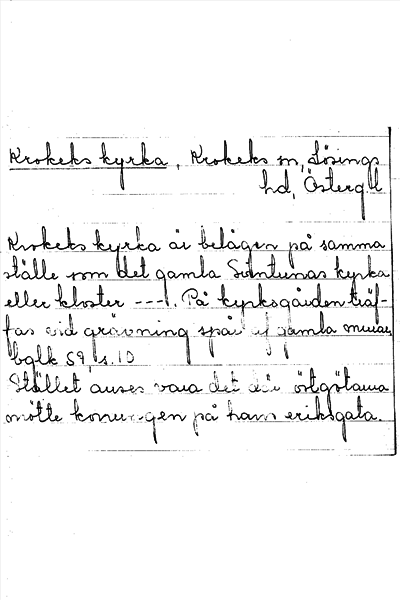 Krokeks kyrka, Krokeks sn, Lösings
hd, Östergtl
Krokeks kyrka är belägen på samma
ställe som det gamla kyrka
eller kloster ---. På kyrkogården träf-
fas vid grävning spår af gamla murar,
bglk 59, s. 10
Stället anses vara det där östgötarna
mötte konungen på hans eriksgata.